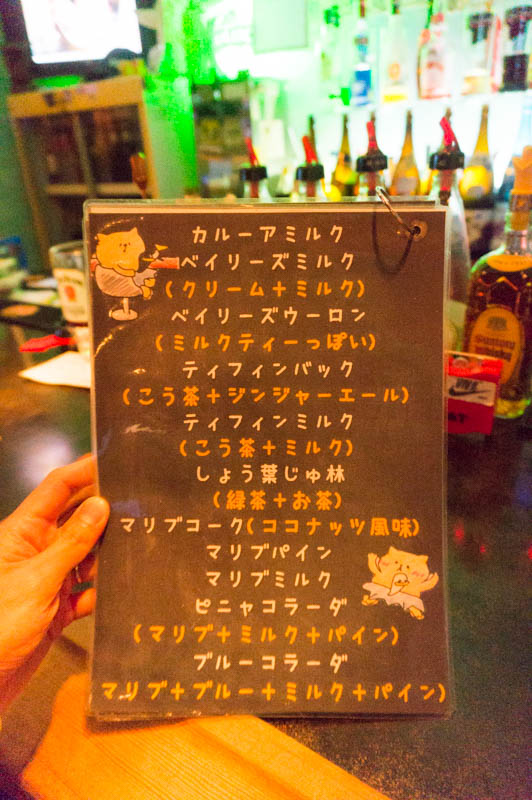 カルーアミルク
ベイリーズミルク
(クリーム+ミルク)
ベイリーズウーロン
(ミルクティーっぽい)
ティフィンバック
(こう茶+ジンジャーエール)
ティフィンミルク
(こう茶+ミルク)
しょう葉じゅ林
(緑茶+お茶)
マリブコーク(ココナッツ風味)
マリブパイン
マリブミルク
ピニャコラーダ
(マリブ+ミルク+パイン)
ブルーコラーダ
マリブ+ブルー+ミルク+パイン)
Suntory